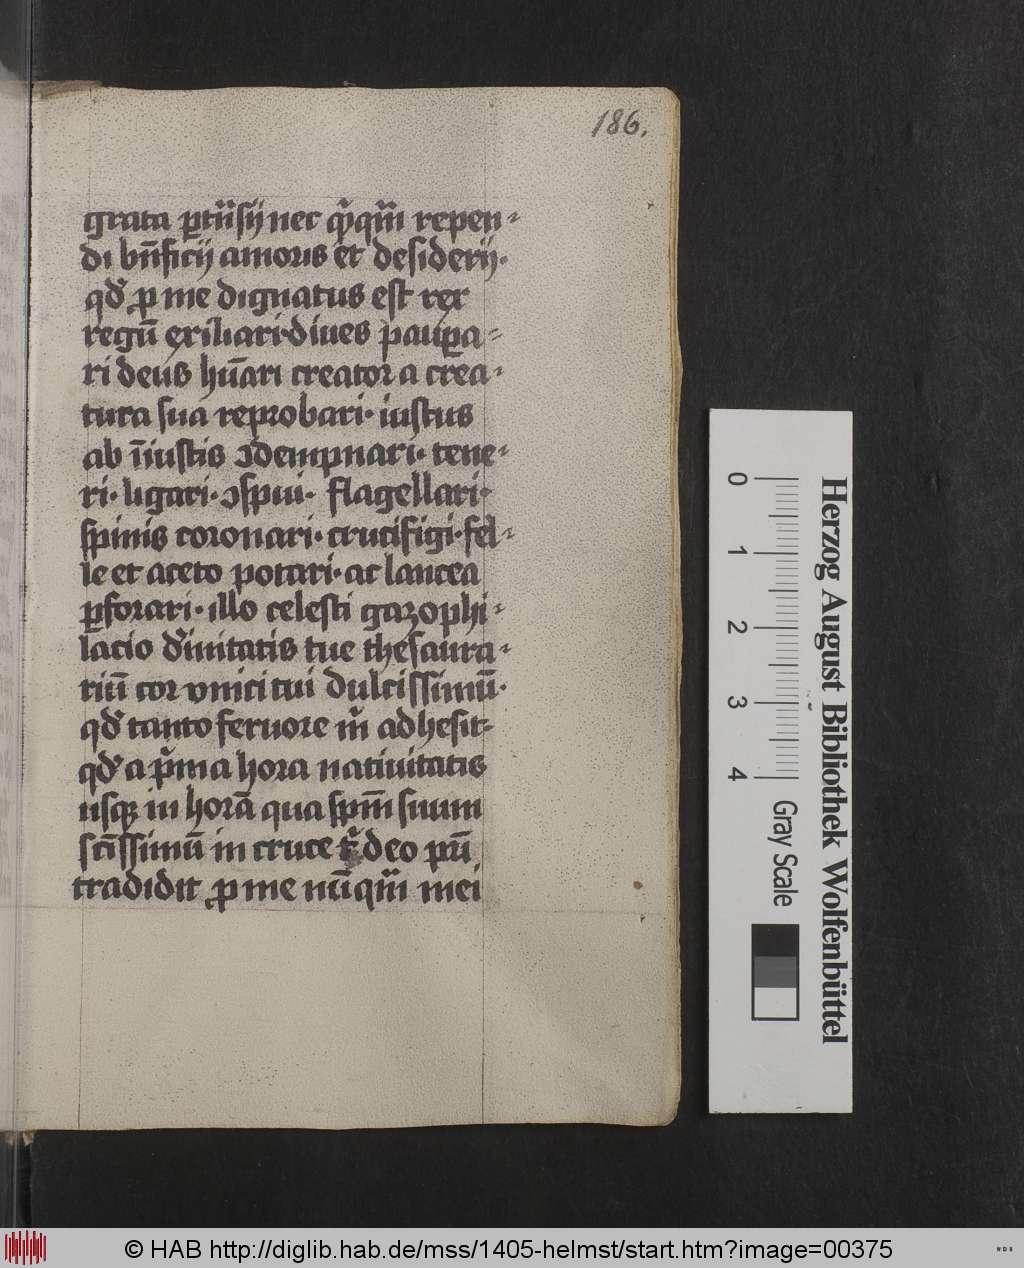 186.
grata ꝑtiisij nec qͥqͣm repen-
di bn̄ficij amoris et desiderij·
qd̛ ꝓ me dignatus est rex
regū exiliari· diues pauꝑa-
ri deus hūari creator a crea-
tura sua reprobari· iustus
ab īiustis ↄdempnari· tene-
ri· ligari· ↄspui· flagellari·
spinis coronari· crucifigi· fel-
le et aceto potari· ac lancea
ꝑforari· illo celesti gazophi-
lacio d̛initatis tue thesaura-
riū cor vnici tui dulcissimū·
qd̛ tanto feruore m̄ adhesit·
qd̛ a pͥma hora natiuitatis
usqꝫ in horā qua spm̄ suum
scissimū in cruce deo pri̅
tradidit ꝓ me nūqͣm mei
Herzog August Bibliothek Wolfenbüttel
0 1 2 3 4
Gray Scale
© HAB http://diglib.hab.de/mss/1405-helmst/start.htm?image=00375